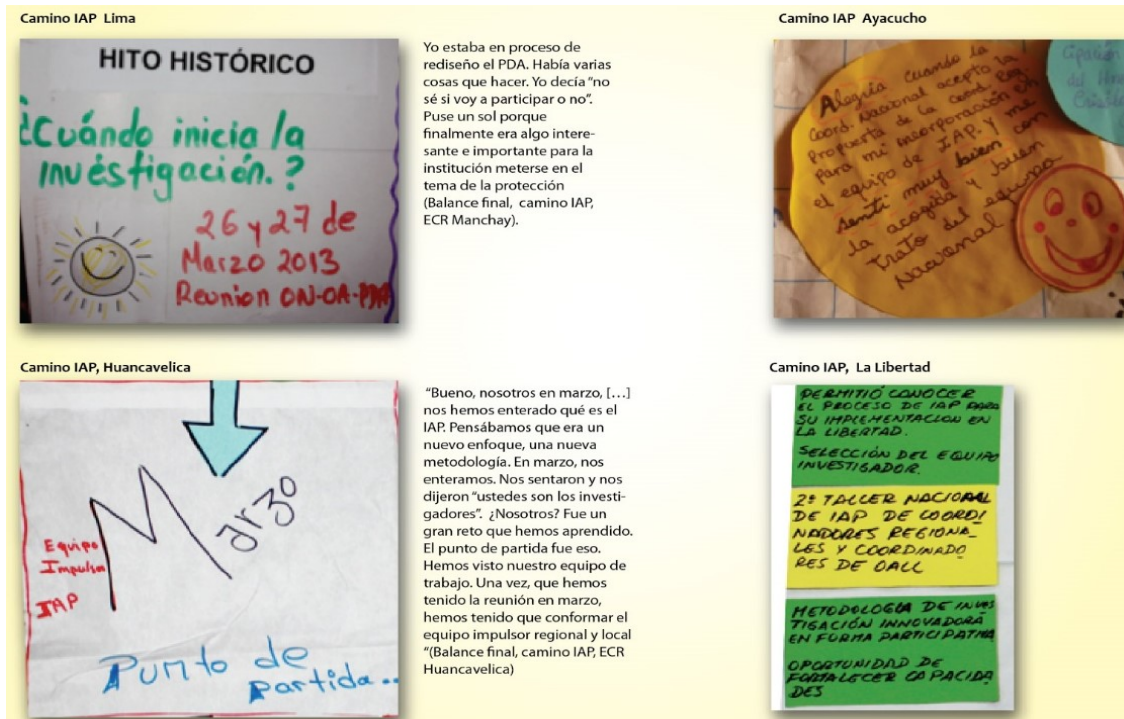 Camino IAP Lima
HITO HISTÓRICO
¿Cuándo inicia la
investigación.?
26 y 27 de
Marzo 2013
Reunion ON-OA-PDA
Yo estaba en proceso de
rediseño el PDA. Había varias
cosas que hacer. Yo decía “no
sé si voy a participar o no”.
Puse un sol porque
finalmente era algo intere-
sante e importante para la
institución meterse en el
tema de la protección
(Balance final, camino IAP,
ECR Manchay).
Camino IAP Ayacucho
Alegria cuando la
Coord. Nacional acepto la
Propuesta de la Coord. Reg
para mi incorporación en
el equipo de I.A.P. y me
senti muy bien con
la acogida y buen
trato del equipo
Nacional
cipación
del
Camino IAP, Huancavelica
Marzo
Equipo
Impulsor
IAP
Punto de
partida...
“Bueno, nosotros en marzo, […]
nos hemos enterado qué es el
IAP. Pensábamos que era un
nuevo enfoque, una nueva
metodología. En marzo, nos
enteramos. Nos sentaron y nos
dijeron “ustedes son los investi-
gadores”. ¿Nosotros? Fue un
gran reto que hemos aprendido.
El punto de partida fue eso.
Hemos visto nuestro equipo de
trabajo. Una vez, que hemos
tenido la reunión en marzo,
hemos tenido que conformar el
equipo impulsor regional y local
“(Balance final, camino IAP, ECR
Huancavelica)
Camino IAP, La Libertad
PERMITIÓ CONOCER
EL PROCESO DE IAP PARA
SU IMPLEMENTACION EN
LA LIBERTAD.
SELECCIÓN DEL EQUIPO
INVESTIGADOR.
2º TALLER NACIONAL
DE IAP DE COORDI
NADORES REGIONA_
LES Y COORDINADO
RES DE OALL
METODOLOGIA DE INVES
TIGACIÓN INNOVADORA
EN FORMA PARTICIPATIVA
OPORTUNIDAD DE
FORTALECER CAPACIDA
DES